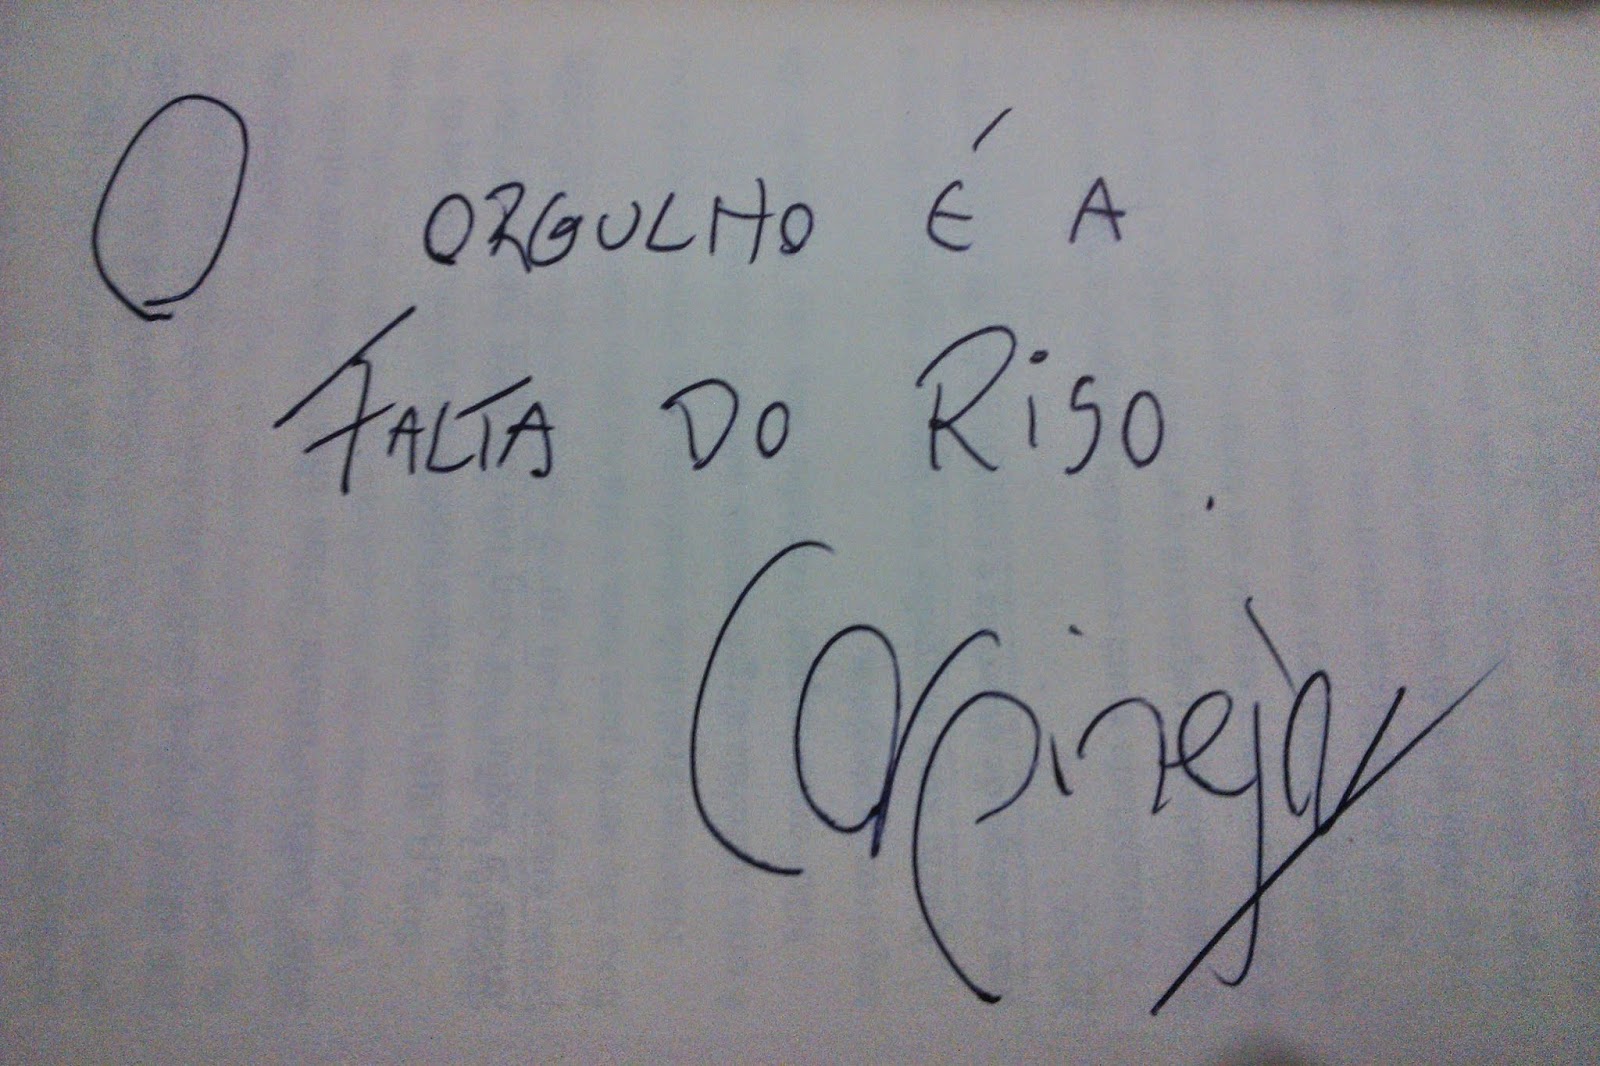 O ORGULHO É A
FALTA DO RISO.
Carpinejar